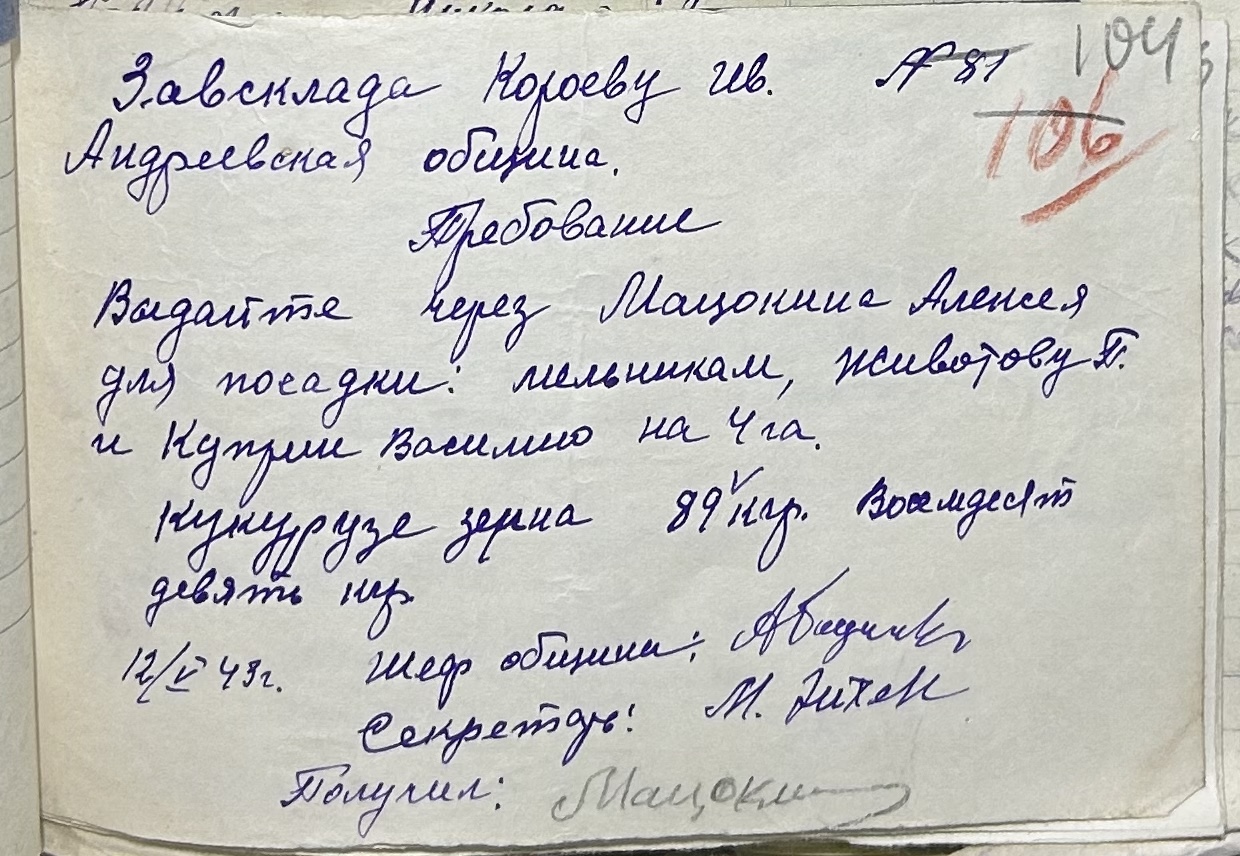 Завсклада Короеву Ив. № 81 104
106
Андреевская община.
Требование
Выдайте через Мацокина Алексея
для посадки: мельникам, Животову П.
и Куприй Василию на 4 га.
Кукурузе зерна 89 кгр. Восемдесят
девять кгр.
12/V 43г. Шеф общины:
Секретарь: М.
Получил: Мацокин